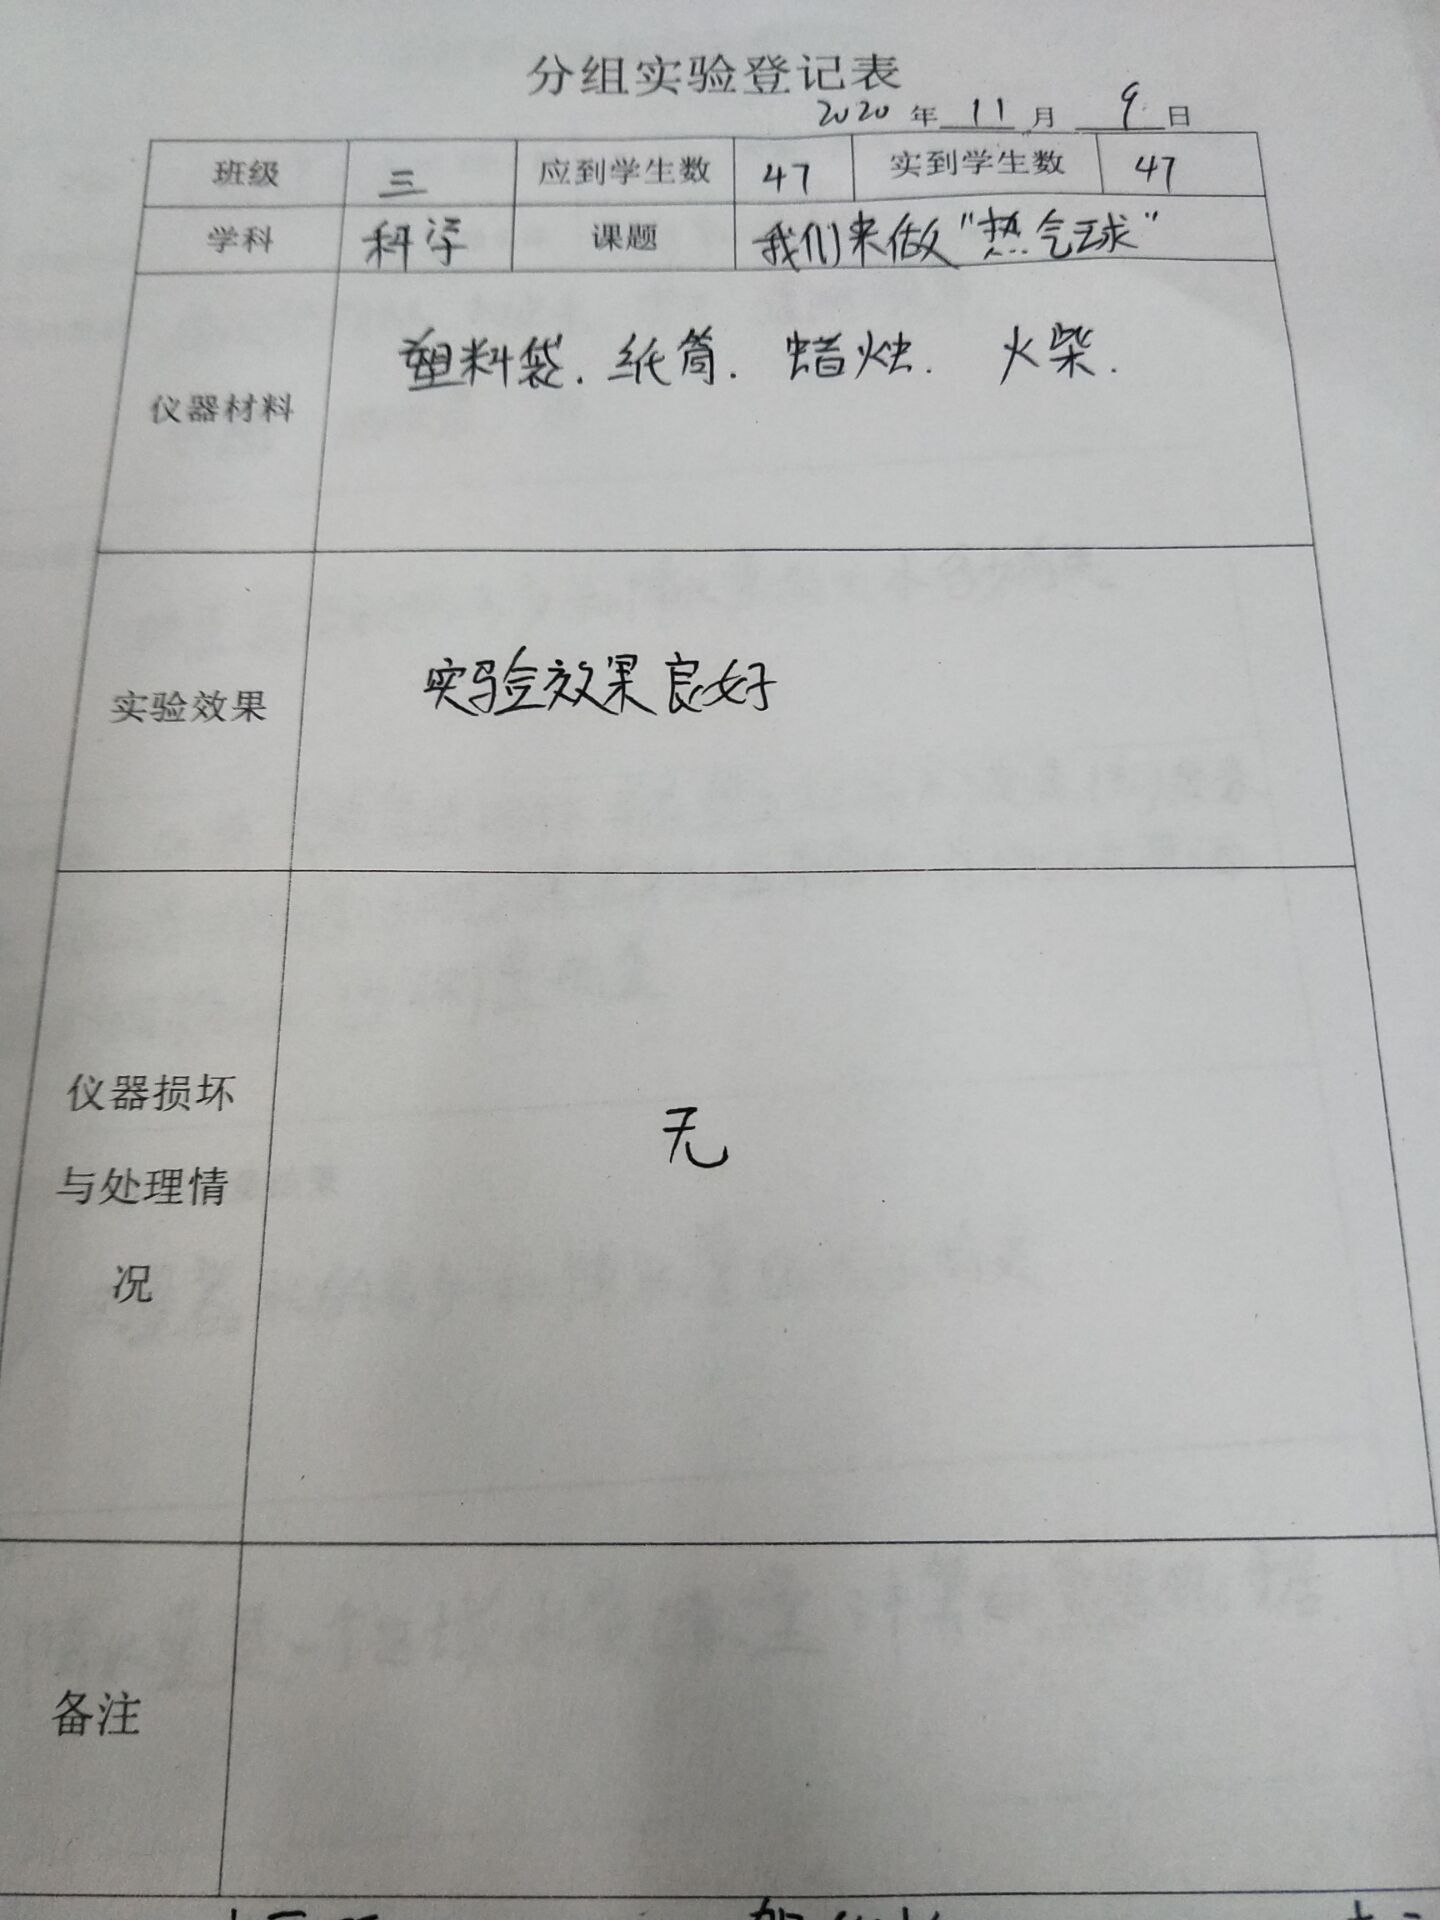 分组实验登记表
2020年 11 月 9 日
班级 三 应到学生数 47 实到学生数 47
学科 科学 课题 我们来做“热气球”
仪器材料 塑料袋. 纸筒. 蜡烛. 火柴.
实验效果 实验效果良好
仪器损坏
与处理情 无
况
备注